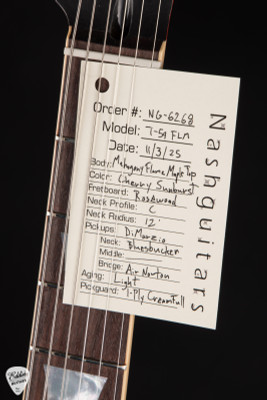 Order #: NG-6268
Model: T-59 FLM
Date: 11/3/25
Body: Mahogany Flame Maple Top
Color: Cherry Sunburst
Fretboard: Rosewood
Neck Profile: C
Neck Radius: 12"
Pickups: DiMarzio
Neck: Bluesbucker
Middle:
Bridge: Air Norton
Aging: Light
Pickguard: 1-Ply Cream Full
Nashguitars